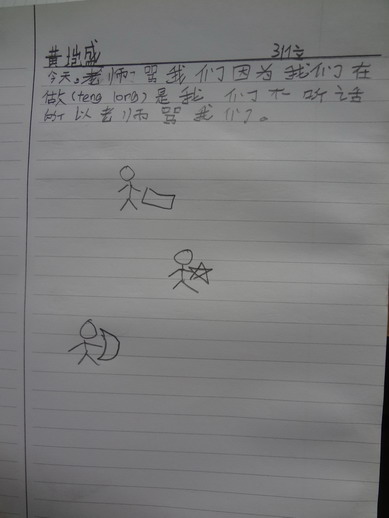 黄垲盛 3忆
今天,老师骂我们因为我们在
做(teng long)是我们不听话
所以老师骂我们。